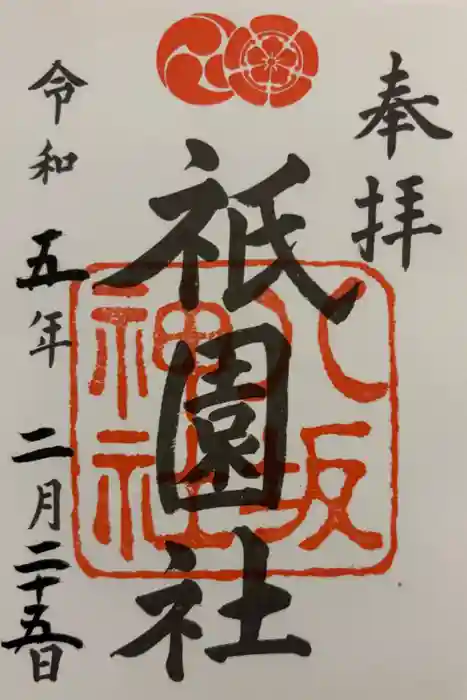 奉拝
祇園社
八坂
神社
令和五年二月二十五日